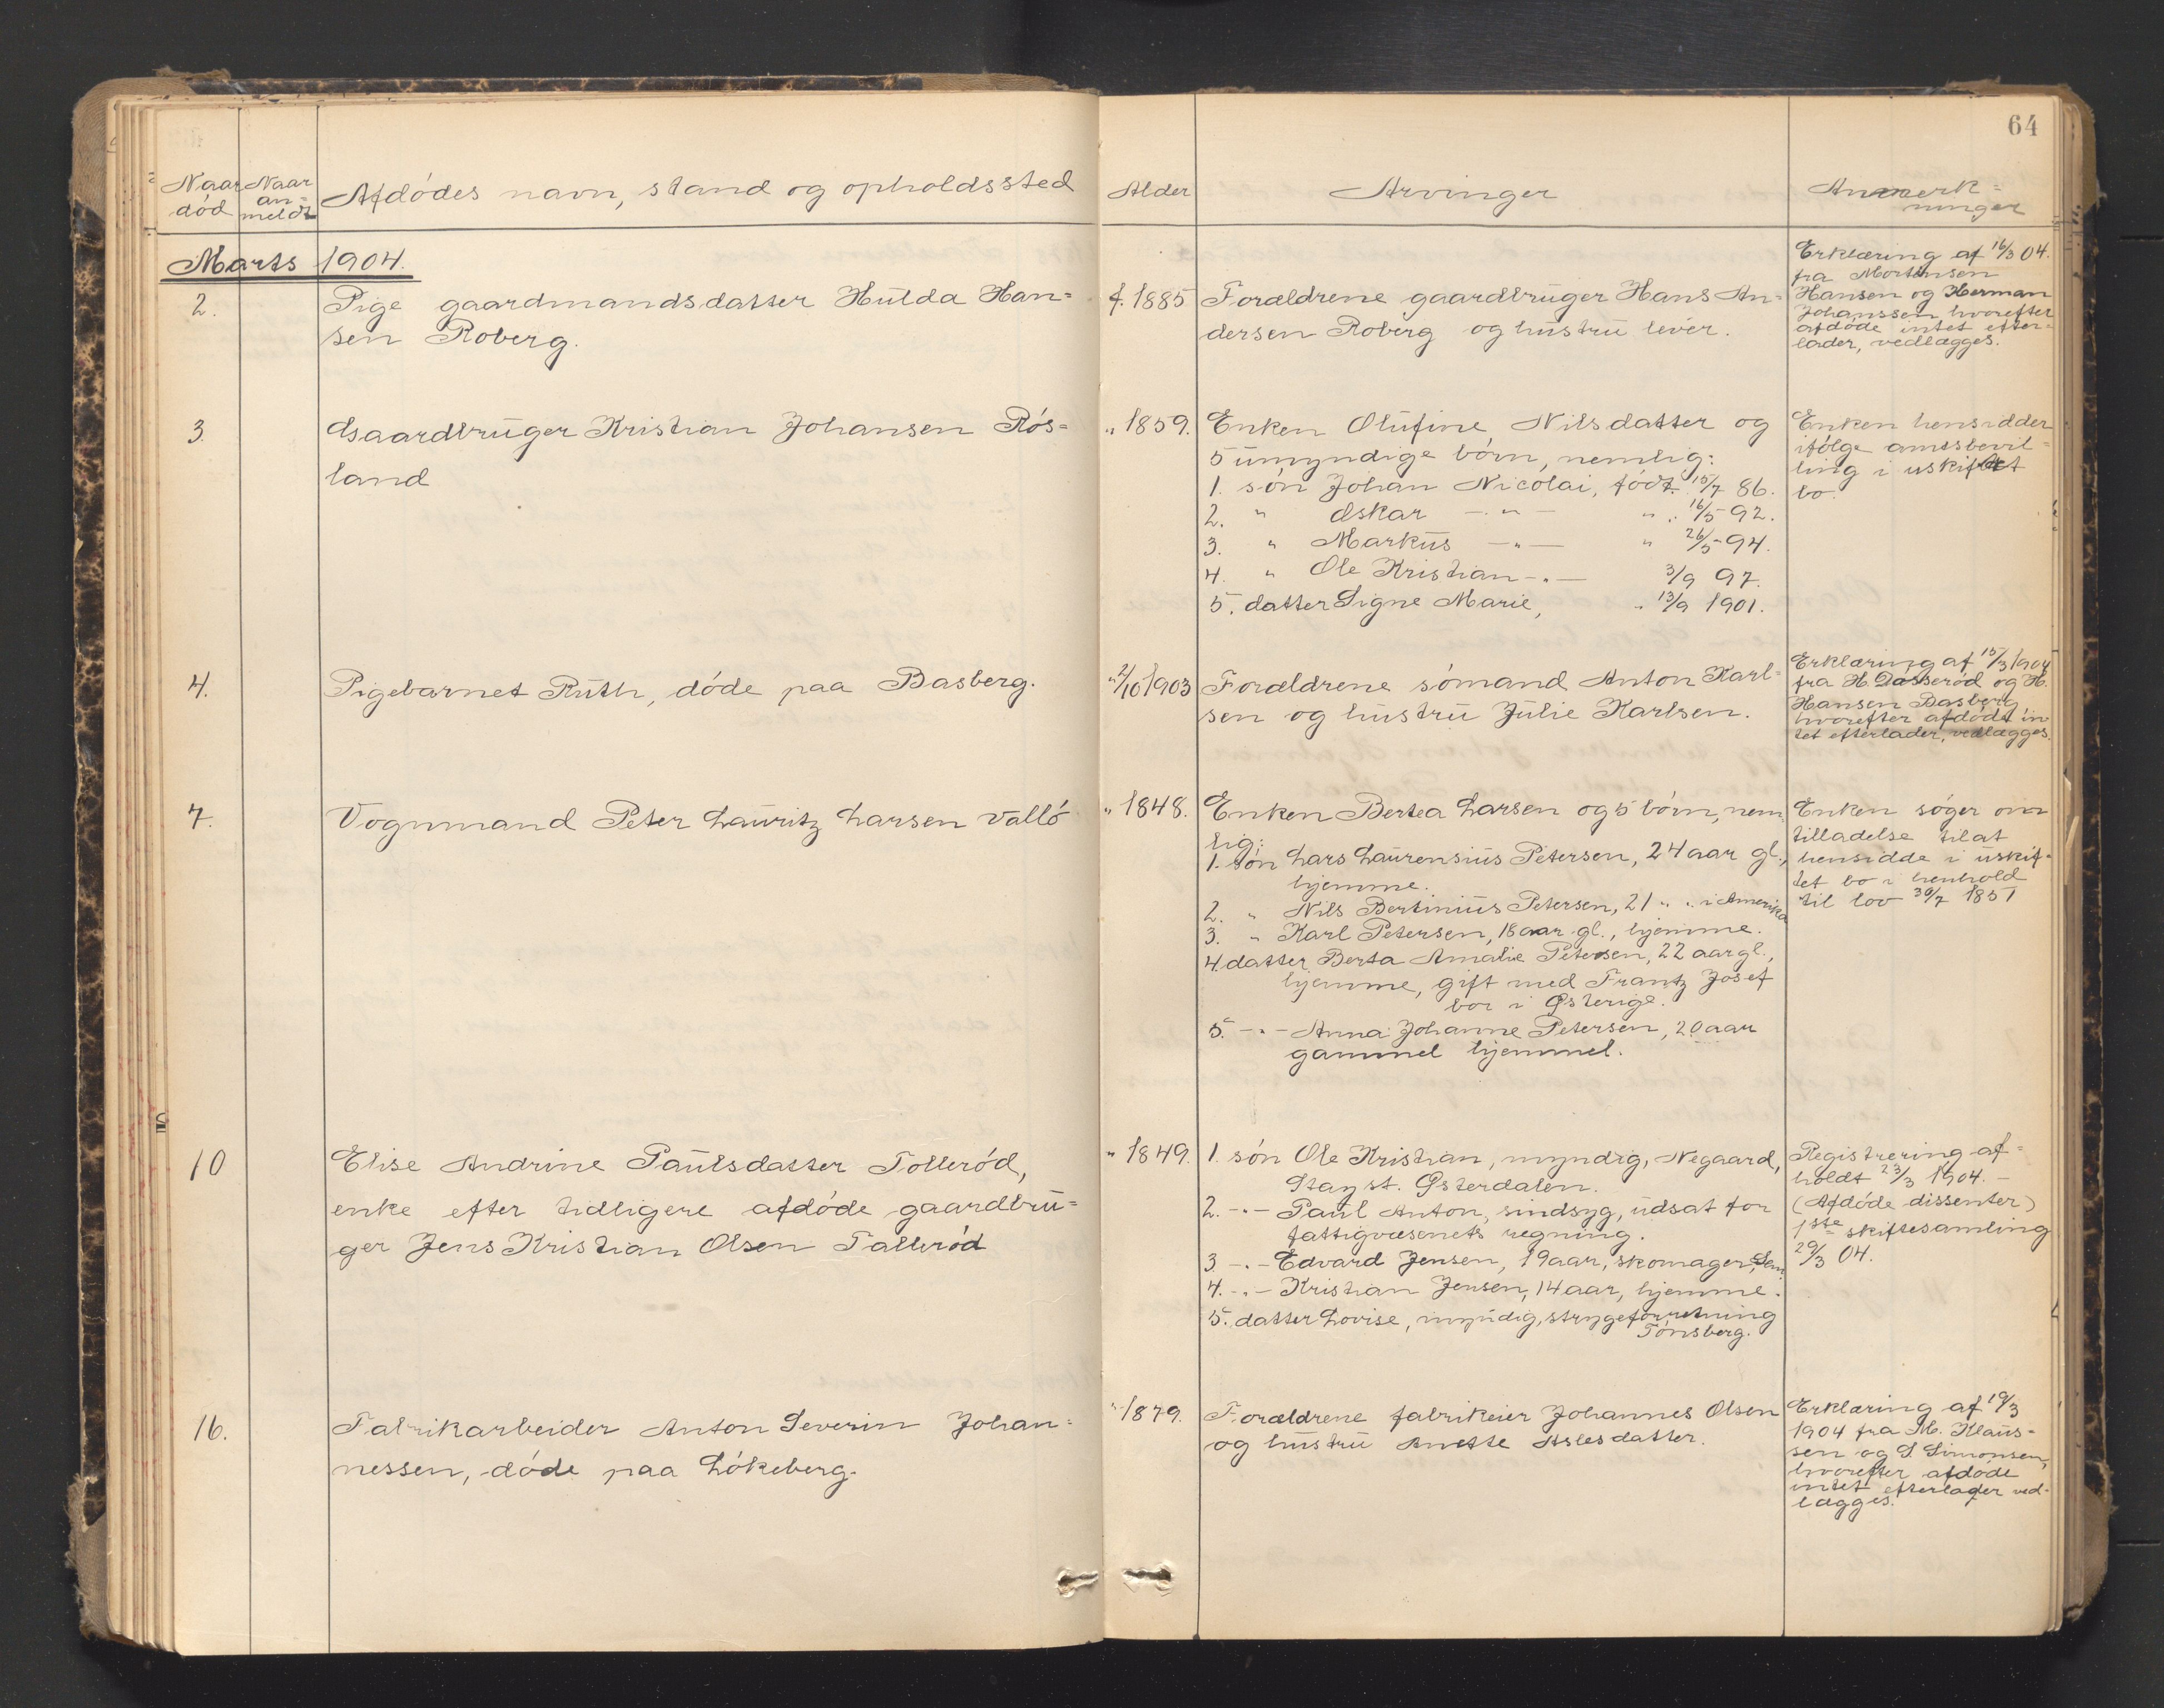 64
Naar død
Naar an=meldt
Afdødes navn, stand og opholdssted
Alder
Arvinger
Anmærk=
ninger
Marts 1904.
2.
Pige gaardmandsdatter Hulda Han=
sen Roberg.
f. 1885
Forældrene gaardbruger Hans An=
dersen Roberg og hustru lever.
Erklæring af 16/3 04.
fra Mortinsen
Hansen og Herman
Johanssen hvorefter
afdøde intet efter=
lader, vedlægges.
3.
Gaardbruger Kristian Johansen Røs=
land
" 1859.
Enken Olufine Nilsdatter og
5 umyndige børn, nemlig:
1. søn Johan Nicolai, født. 15/7 86.
2. " Oskar - " - " . 16/5 92.
3. " Markus - " - " 26/5 94.
4. " Ole Kristian - " - 3/9 97.
5. datter Signe Marie, " 13/9 1901.
Enken hensidder
ifølge amtsbevil=
ling i uskiftet
bo.
4.
Pigebarnet Ruth, døde paa Basberg.
" 2/10 1903
Forældrene sømand Anton Karl=
sen og hustru Julie Karlsen.
Erklæring af 15/3 1904
fra H. Dasserød og H.
Hansen Basberg,
hvorefter afdøde in
tet efterlader, vedlægges.
7.
Vognmand Peter Lauritz Larsen Vallø
" 1848.
Enken Bertea Larsen og 5 børn, nem
lig:
1. søn Lars Laurensius Petersen, 24 aar gl.,
hjemme.
2. " Nils Bertinius Petersen, 21 " " i Amerika
3. " Karl Petersen, 18 aar gl., hjemme.
4. datter Berta Amalie Petersen, 22 aar gl.,
hjemme, gift med Frantz Josef
bor i Østerige.
5. - " - Anna Johanne Petersen, 20 aar
gammel hjemmel.
Enken søger om
tilladelse til at
hensidde i uskif=
tet bo i henhold
til lov 30/7 1851
10
Elise Andrine Paulsdatter Tollerød,
enke efter tidligere afdøde gaardbru=
ger Jens Kristian Olsen Tallerød
" 1849.
1. søn Ole Kristian, myndig, Negaard,
Stay st. Østerdalen.
2. - " - Paul Anton, sindsyg, udsat for
fattigvæsenets regning.
3. - " - Edvard Jensen, 19 aar, skomager, Sem.
4. - " - Kristian Jensen, 14 aar, hjemme.
5. datter Lovise, myndig, strygeforretning
Tønsberg.
Registrering af=
holdt 23/3 1904. -
(Afdøde dissenter)
1ste skiftesamling
29/3 04.
16.
Fabrikarbeider Anton Severin Johan=
nessen, døde paa Løkeberg.
" 1879.
Forældrene fabrikeier Johannes Olsen
og hustru Anette Aslesdatter.
Erklæring af 19/3
1904 fra M. Klaus=
sen og S. Simonsen,
hvorefter afdøde
intet efterlader ved=
lægges.